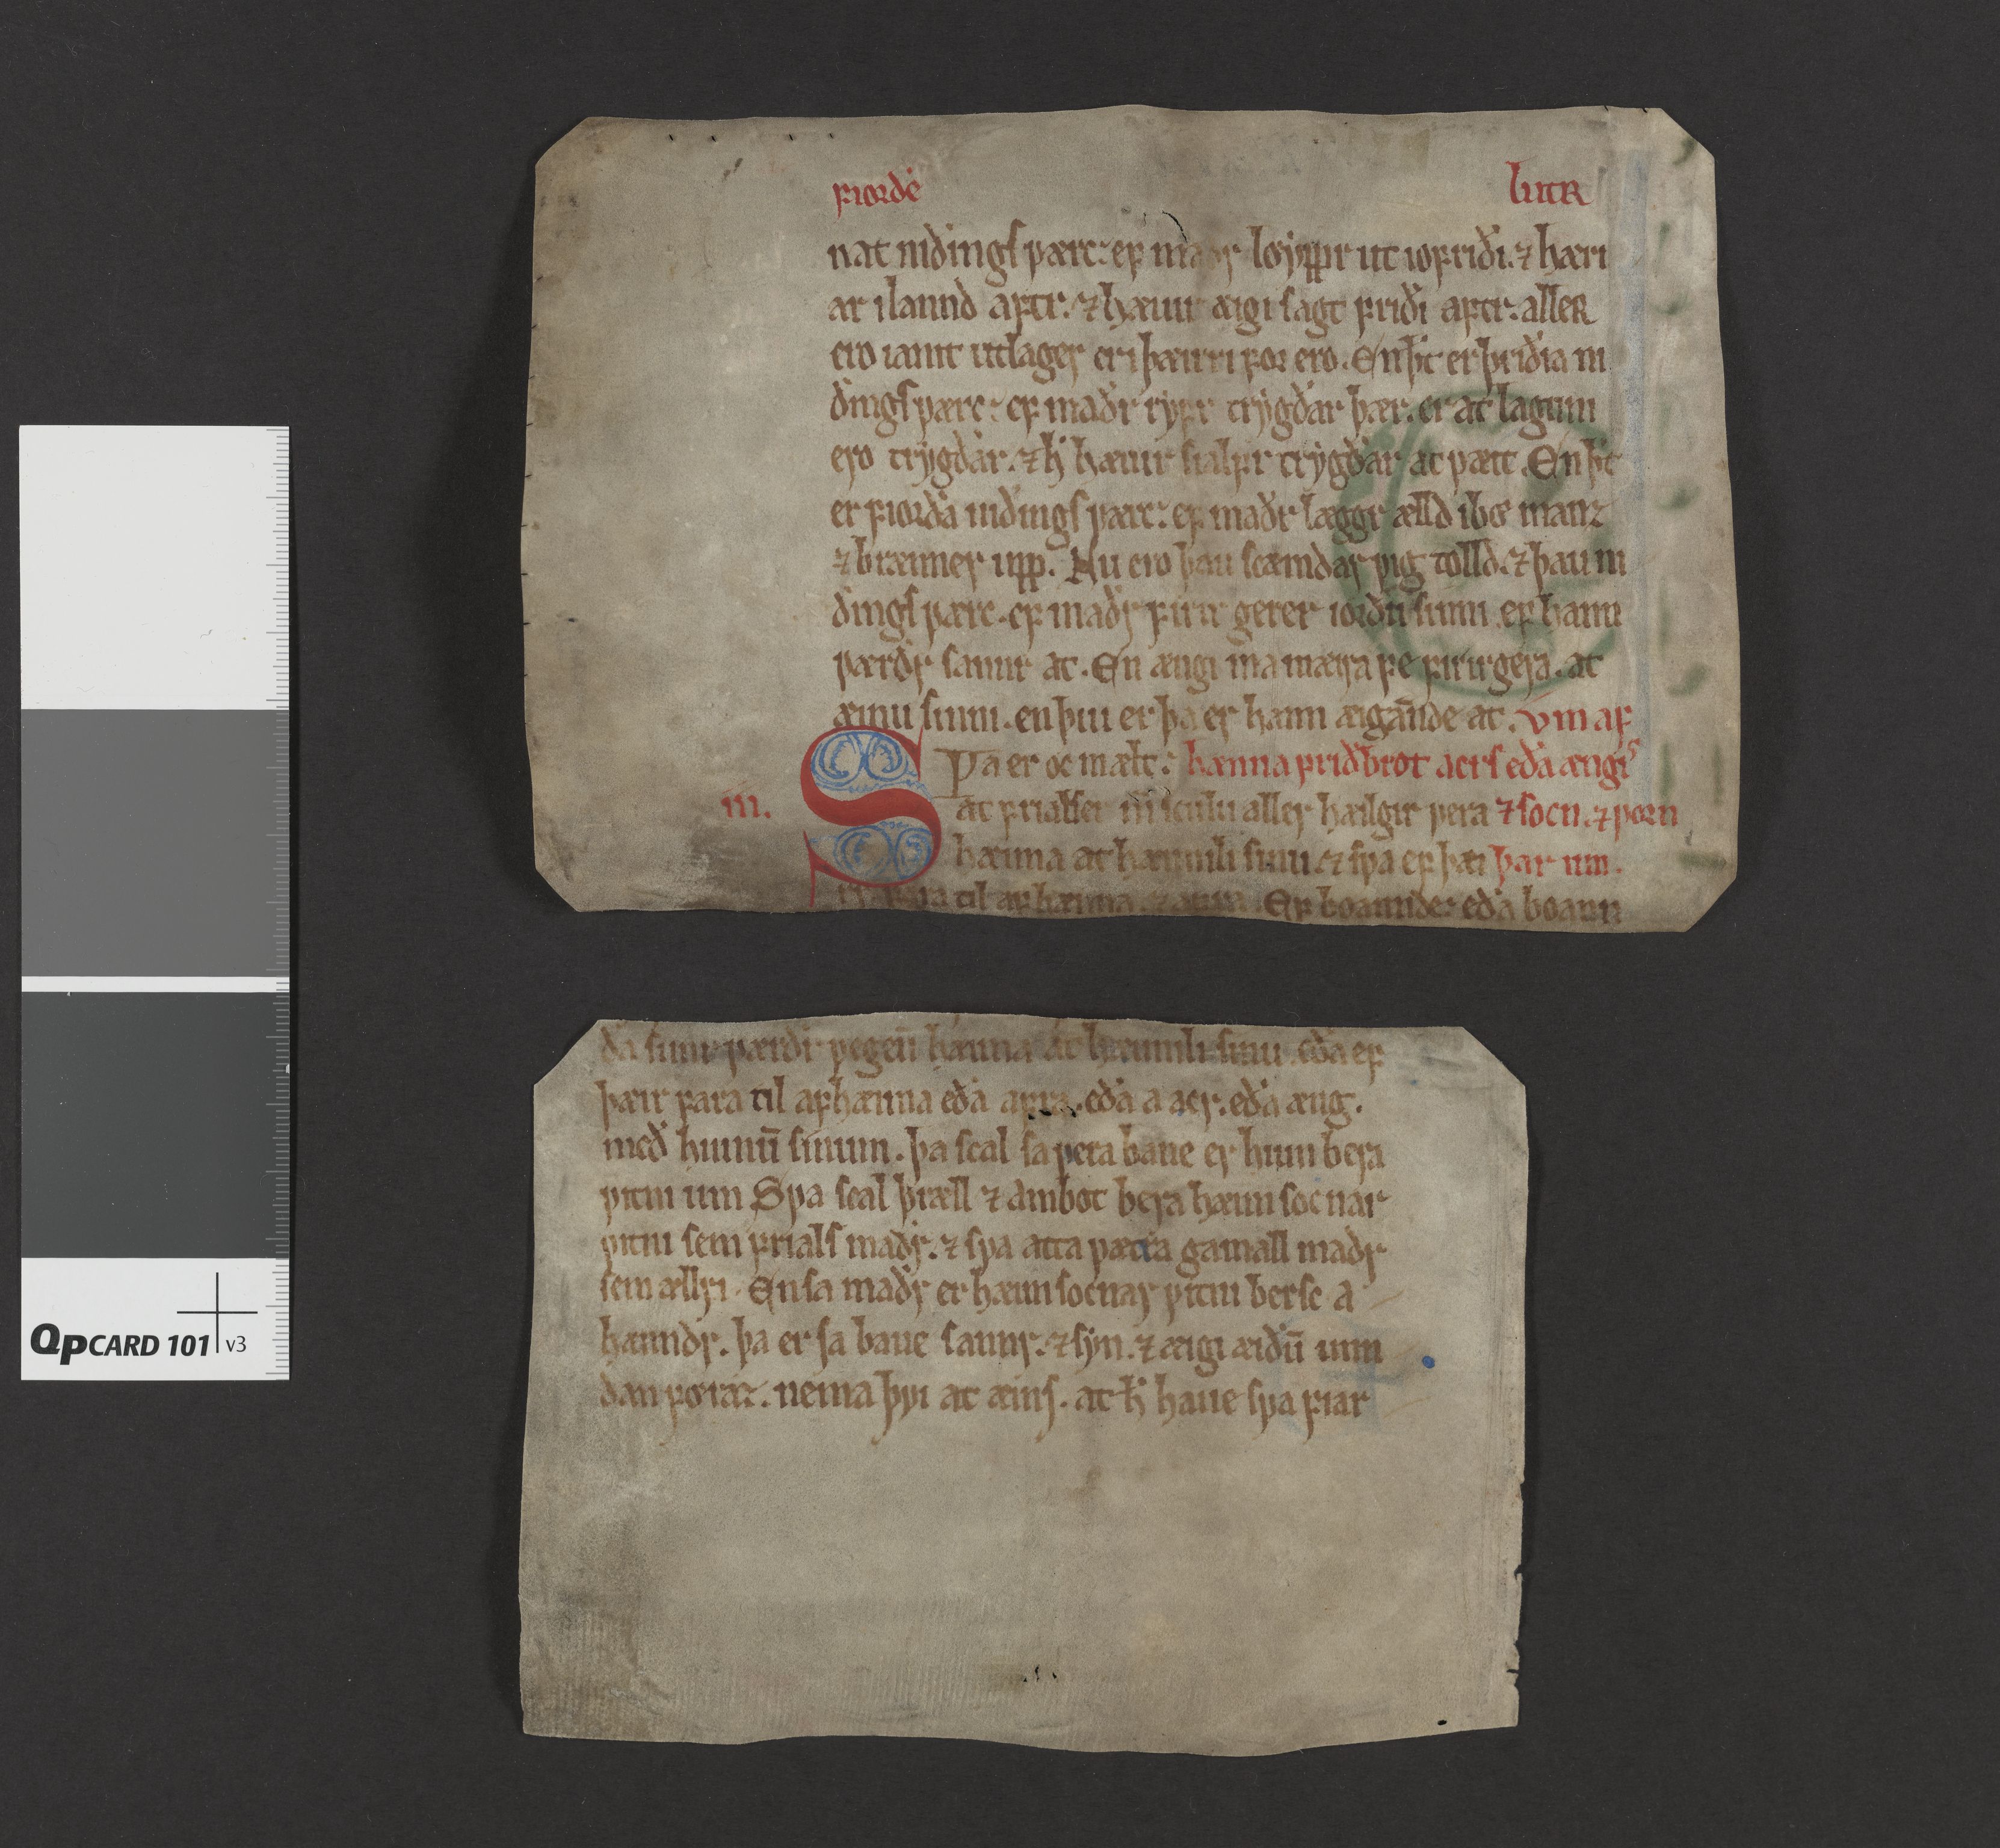 fiorðe lutꝛ
nat niðingſ værc: ef maðr løyppr ut iofriði. ⁊ hæri
ar ilannd aftr. ⁊ hævir æigi ſagt friði aftr. aller
ero iamt utlager er i þæirri for ero. En þͭ er þriðia ni
ðingſ værc: ef maðr ryfr trygðar þær. er at lagum
ero trygðar. ⁊ h̅ hævir ſialfr trygðar at væitt. En þͭ
er fiorða niðingſ værc: ef maðr læggr ælld i bø manz
⁊ brænner upp. Nu ero þau ſcæmdar vig tolld. ⁊ þau ni
ðingſ værc. ef maðr firir gerer iorðu ſinni. ef hann
værðr ſannr at. En ængi ma mæira fe firirgera. at
æinu ſinni. en þvi er þa er hann æigande at. Vm af
Sva er oc mælt: hænna friðbrot acrſ eða ængi
iii. at frialſer m̅ ſculu aller hæilgir vera ⁊ ſocn. ⁊ vorn
hæima at hæimili ſinu. ⁊ ſva ef þæi þar um.
til afhænna. Ef boannde: eða boann
ða ſunr værðr veginn hæima at hæimili ſinu. eða ef
þæir fara til afhænna eða afra. eða a acr. eða æng.
með hiunū ſinum. þa ſcal ſa vera bane er hiun bera
vitni um Sva ſcal þræll ⁊ ambot bera hæimſocnar
vitni ſem frialſ maðr. ⁊ ſva atta vætra gamall maðr
ſem ællri. En ſa maðr er hæimſocnar vitni berſc a
hanndr. þa er ſa bane ſannr. ⁊ ſyn. ⁊ æigi æiðū unn
dan føraz. nema þvi at æinſ. at h̅ have ſva fiar